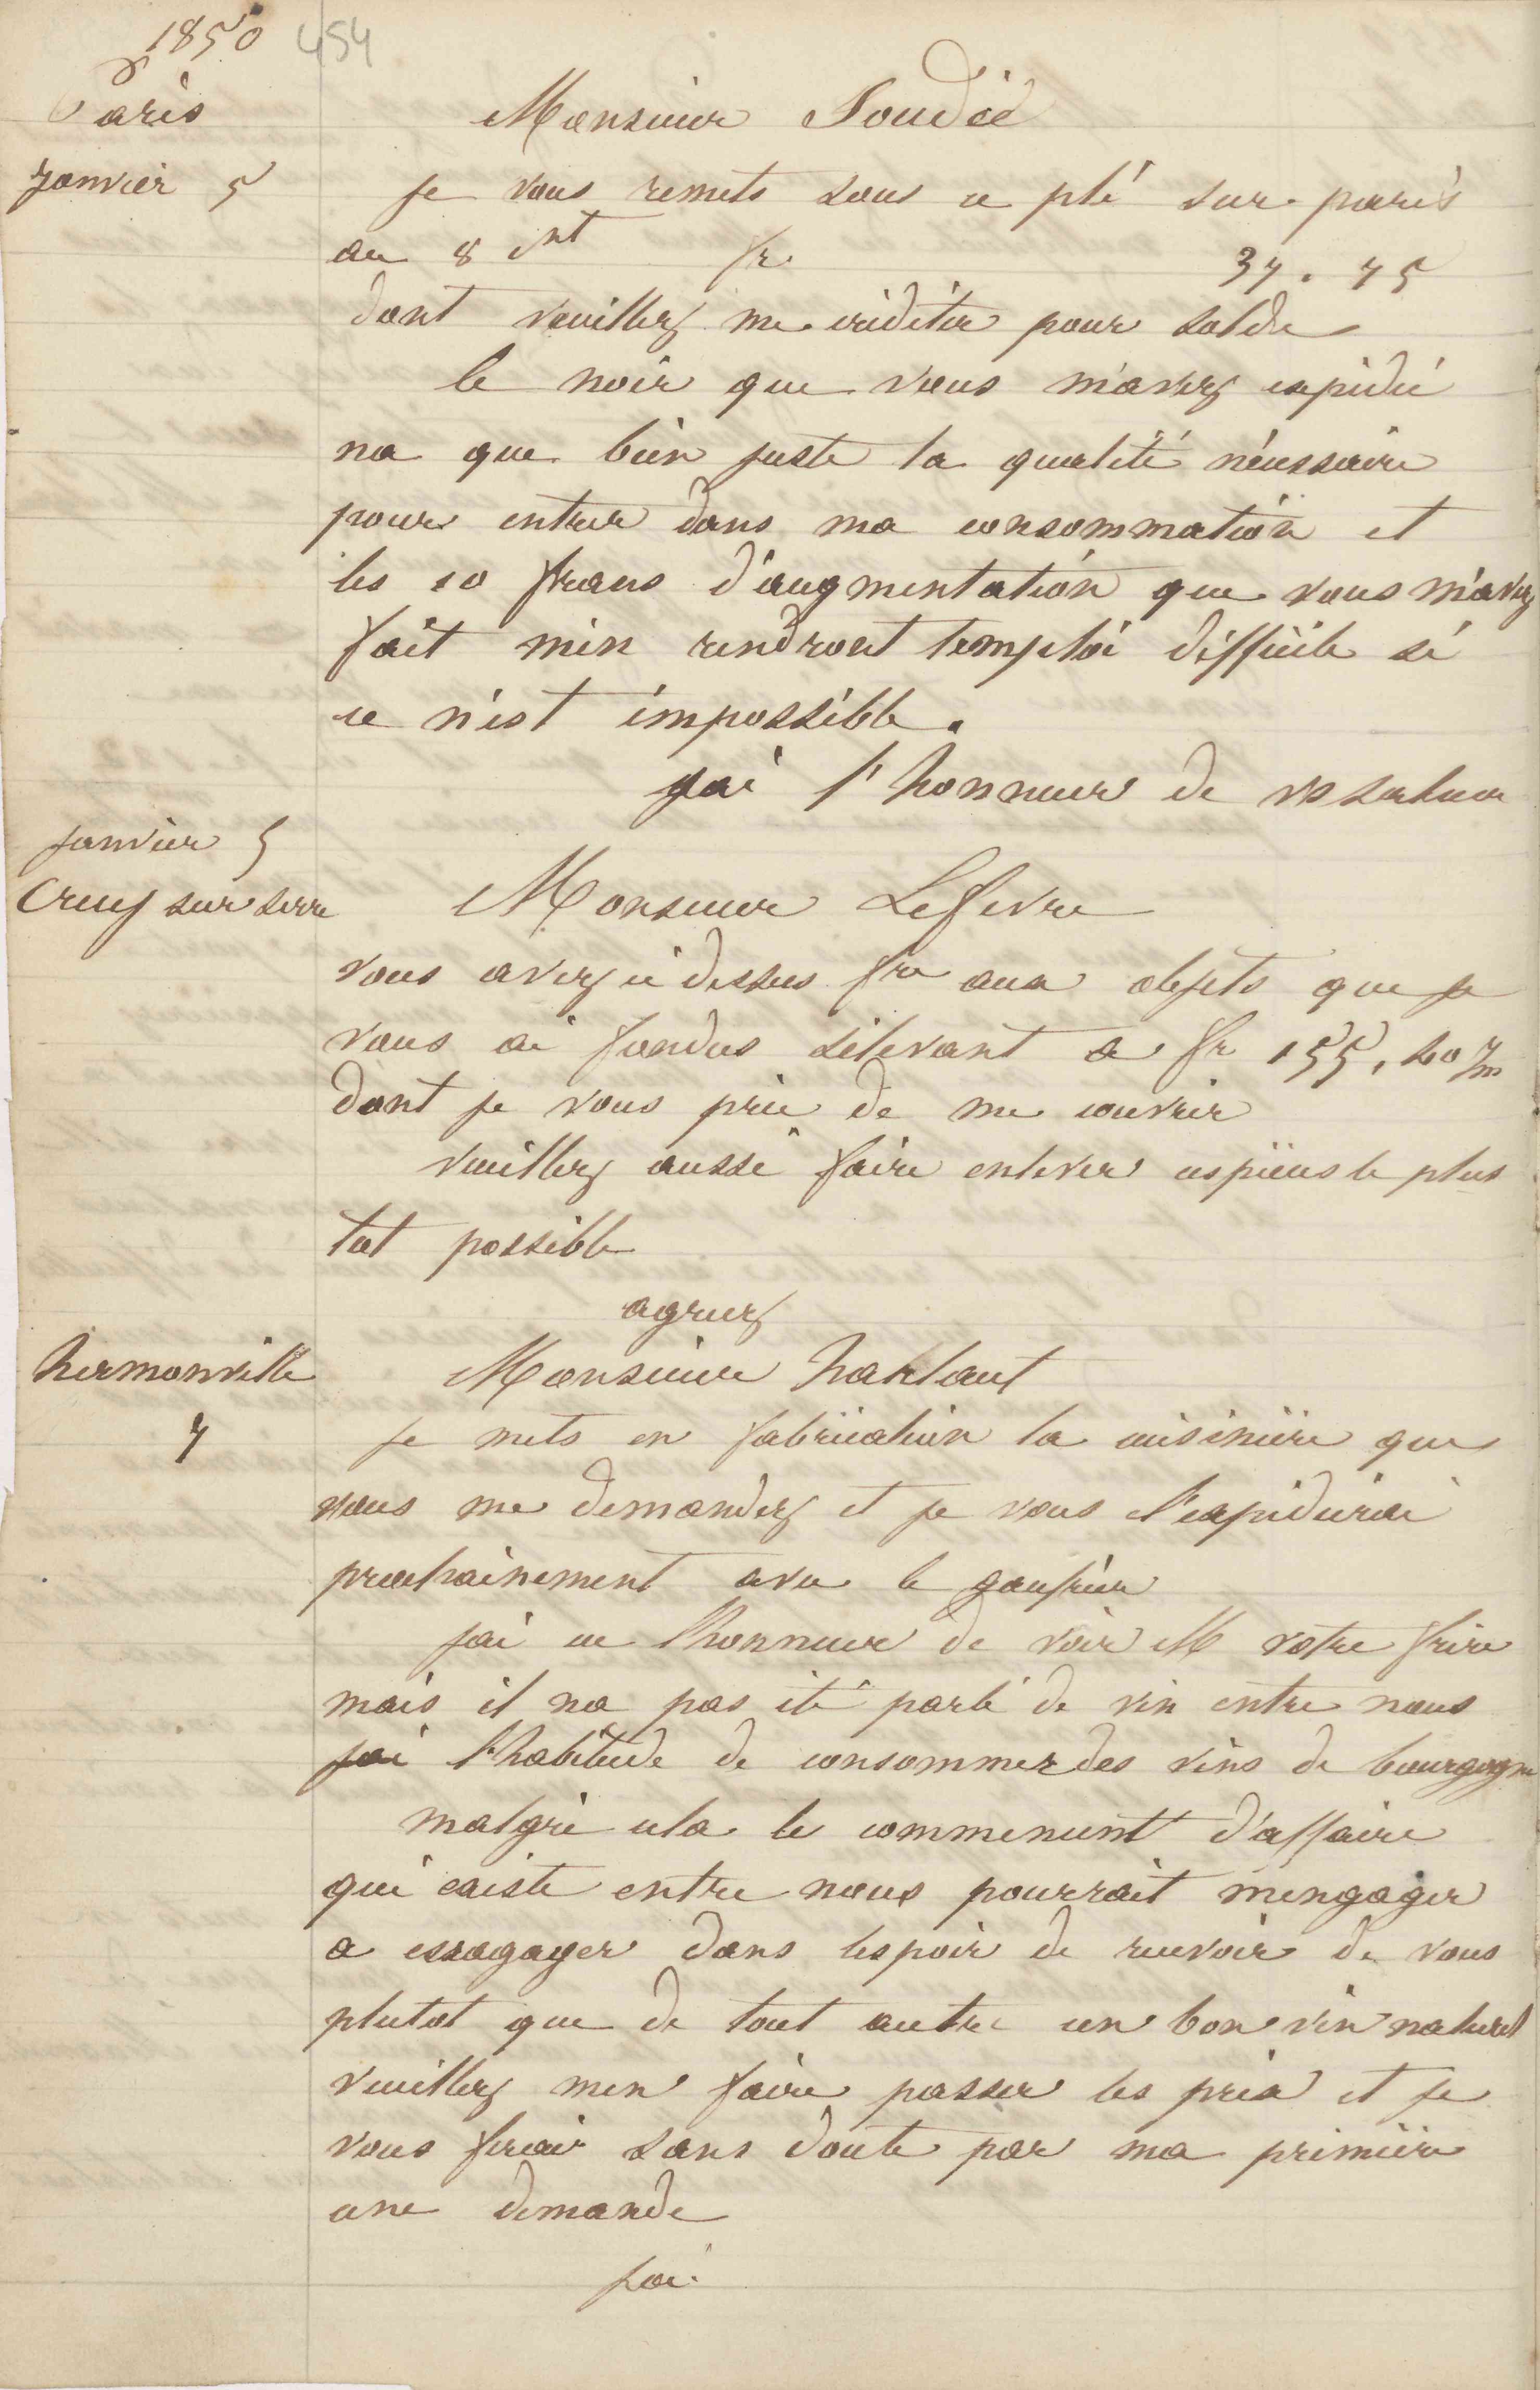 1850 454
Paris
Monsieur Soudée
Janvier 5
je vous remets sous ce pli sur paris
au 8 ct fr. 37. 75
dont veuillez me créditer pour solde
le noir que vous m'avez expédié
na que bien juste la qualité nécessaire
pour entrer dans ma consommation et
les 10 francs d'augmentation que vous m'avez
fait m'en rendront l'emploi difficile si
ce n'est impossible.
jai l'honneur de vs saluer
janvier 5
Crecy sur serre
Monsieur Lefevre
vous avez ci dessus fre aux objets que je
vous ai fondus s'élevant a fr 155,
dont je vous prie de me couvrir
veuillez aussi faire enlever ces pièces le plus
tot possible
agreez
hermonville
Monsieur
7
je mets en fabrication la cuisinière que
vous me demandez et je vous l'expédierai
prochainement avec le gaufrier
jai eu l'honneur de voir M votre frère
mais il na pas été parlé de vin entre nous
jai l'habitude de consommer des vins de bourgogne
malgré cela le commencemt d'affaire
qui existe entre nous pourrait m'engager
a essagayer dans lespoir de recevoir de vous
plutot que de tout autre un bon vin naturel
veuillez men faire passer les prix et je
vous ferair sans doute par ma première
une demande
jai